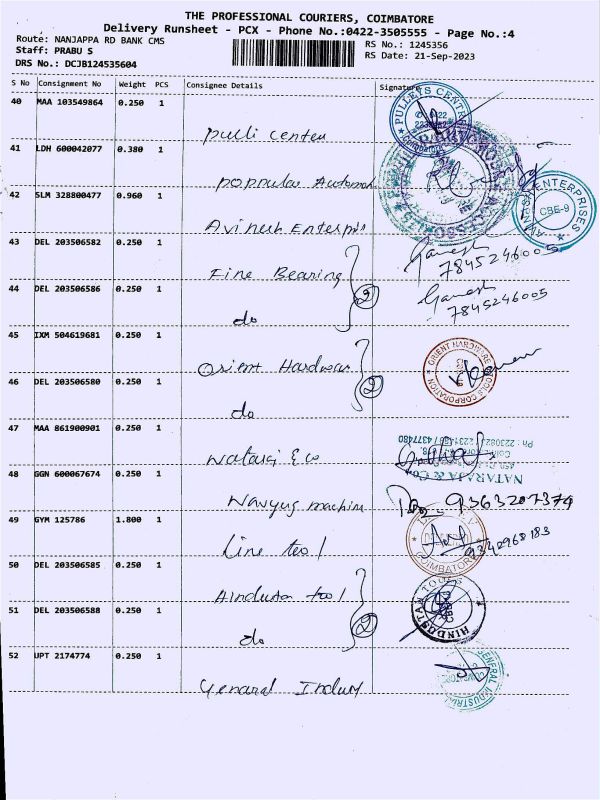 THE PROFESSIONAL COURIERS, COIMBATORE
Delivery Runsheet - PCX - Phone No.:0422-3505555 - Page No.:4
Route: NANJAPPA RD BANK CMS
RS No.: 1245356
Staff: PRABU S
RS Date: 21-Sep-2023
DRS No.: DCJB124535604
S No Consignment No Weight PCS Consignee Details Signature
40 MAA 103549864 0.250 1
Pulli Center
PULLETS CENTR
41 LDH 600042077 0.380 1
Poppular Automob
42 SLM 328800477 0.960 1
Avinesh Enterpris
ENTERPRISES
CBE-9
43 DEL 203506582 0.250 1
Fine Bearing
Ganesh
7845246005
44 DEL 203506586 0.250 1
do
2
Ganesh
7845246005
45 IXM 504619681 0.250 1
Orient Hardwar
ORIENT HARDWARE TOOLS CORPORATION
46 DEL 203506580 0.250 1
do
2
47 MAA 861900901 0.250 1
Nataraj & Co
NATARAJA & Co
48 GGN 600067674 0.250 1
Navyug machine
9363207379
49 GYM 125786 1.800 1
Line tool
COIMBATORE
9342968183
50 DEL 203506585 0.250 1
Hindustan tool
HINDUSTAN TOOLS
51 DEL 203506588 0.250 1
do
2
52 UPT 2174774 0.250 1
Genaral Indust
GENERAL INDUSTR